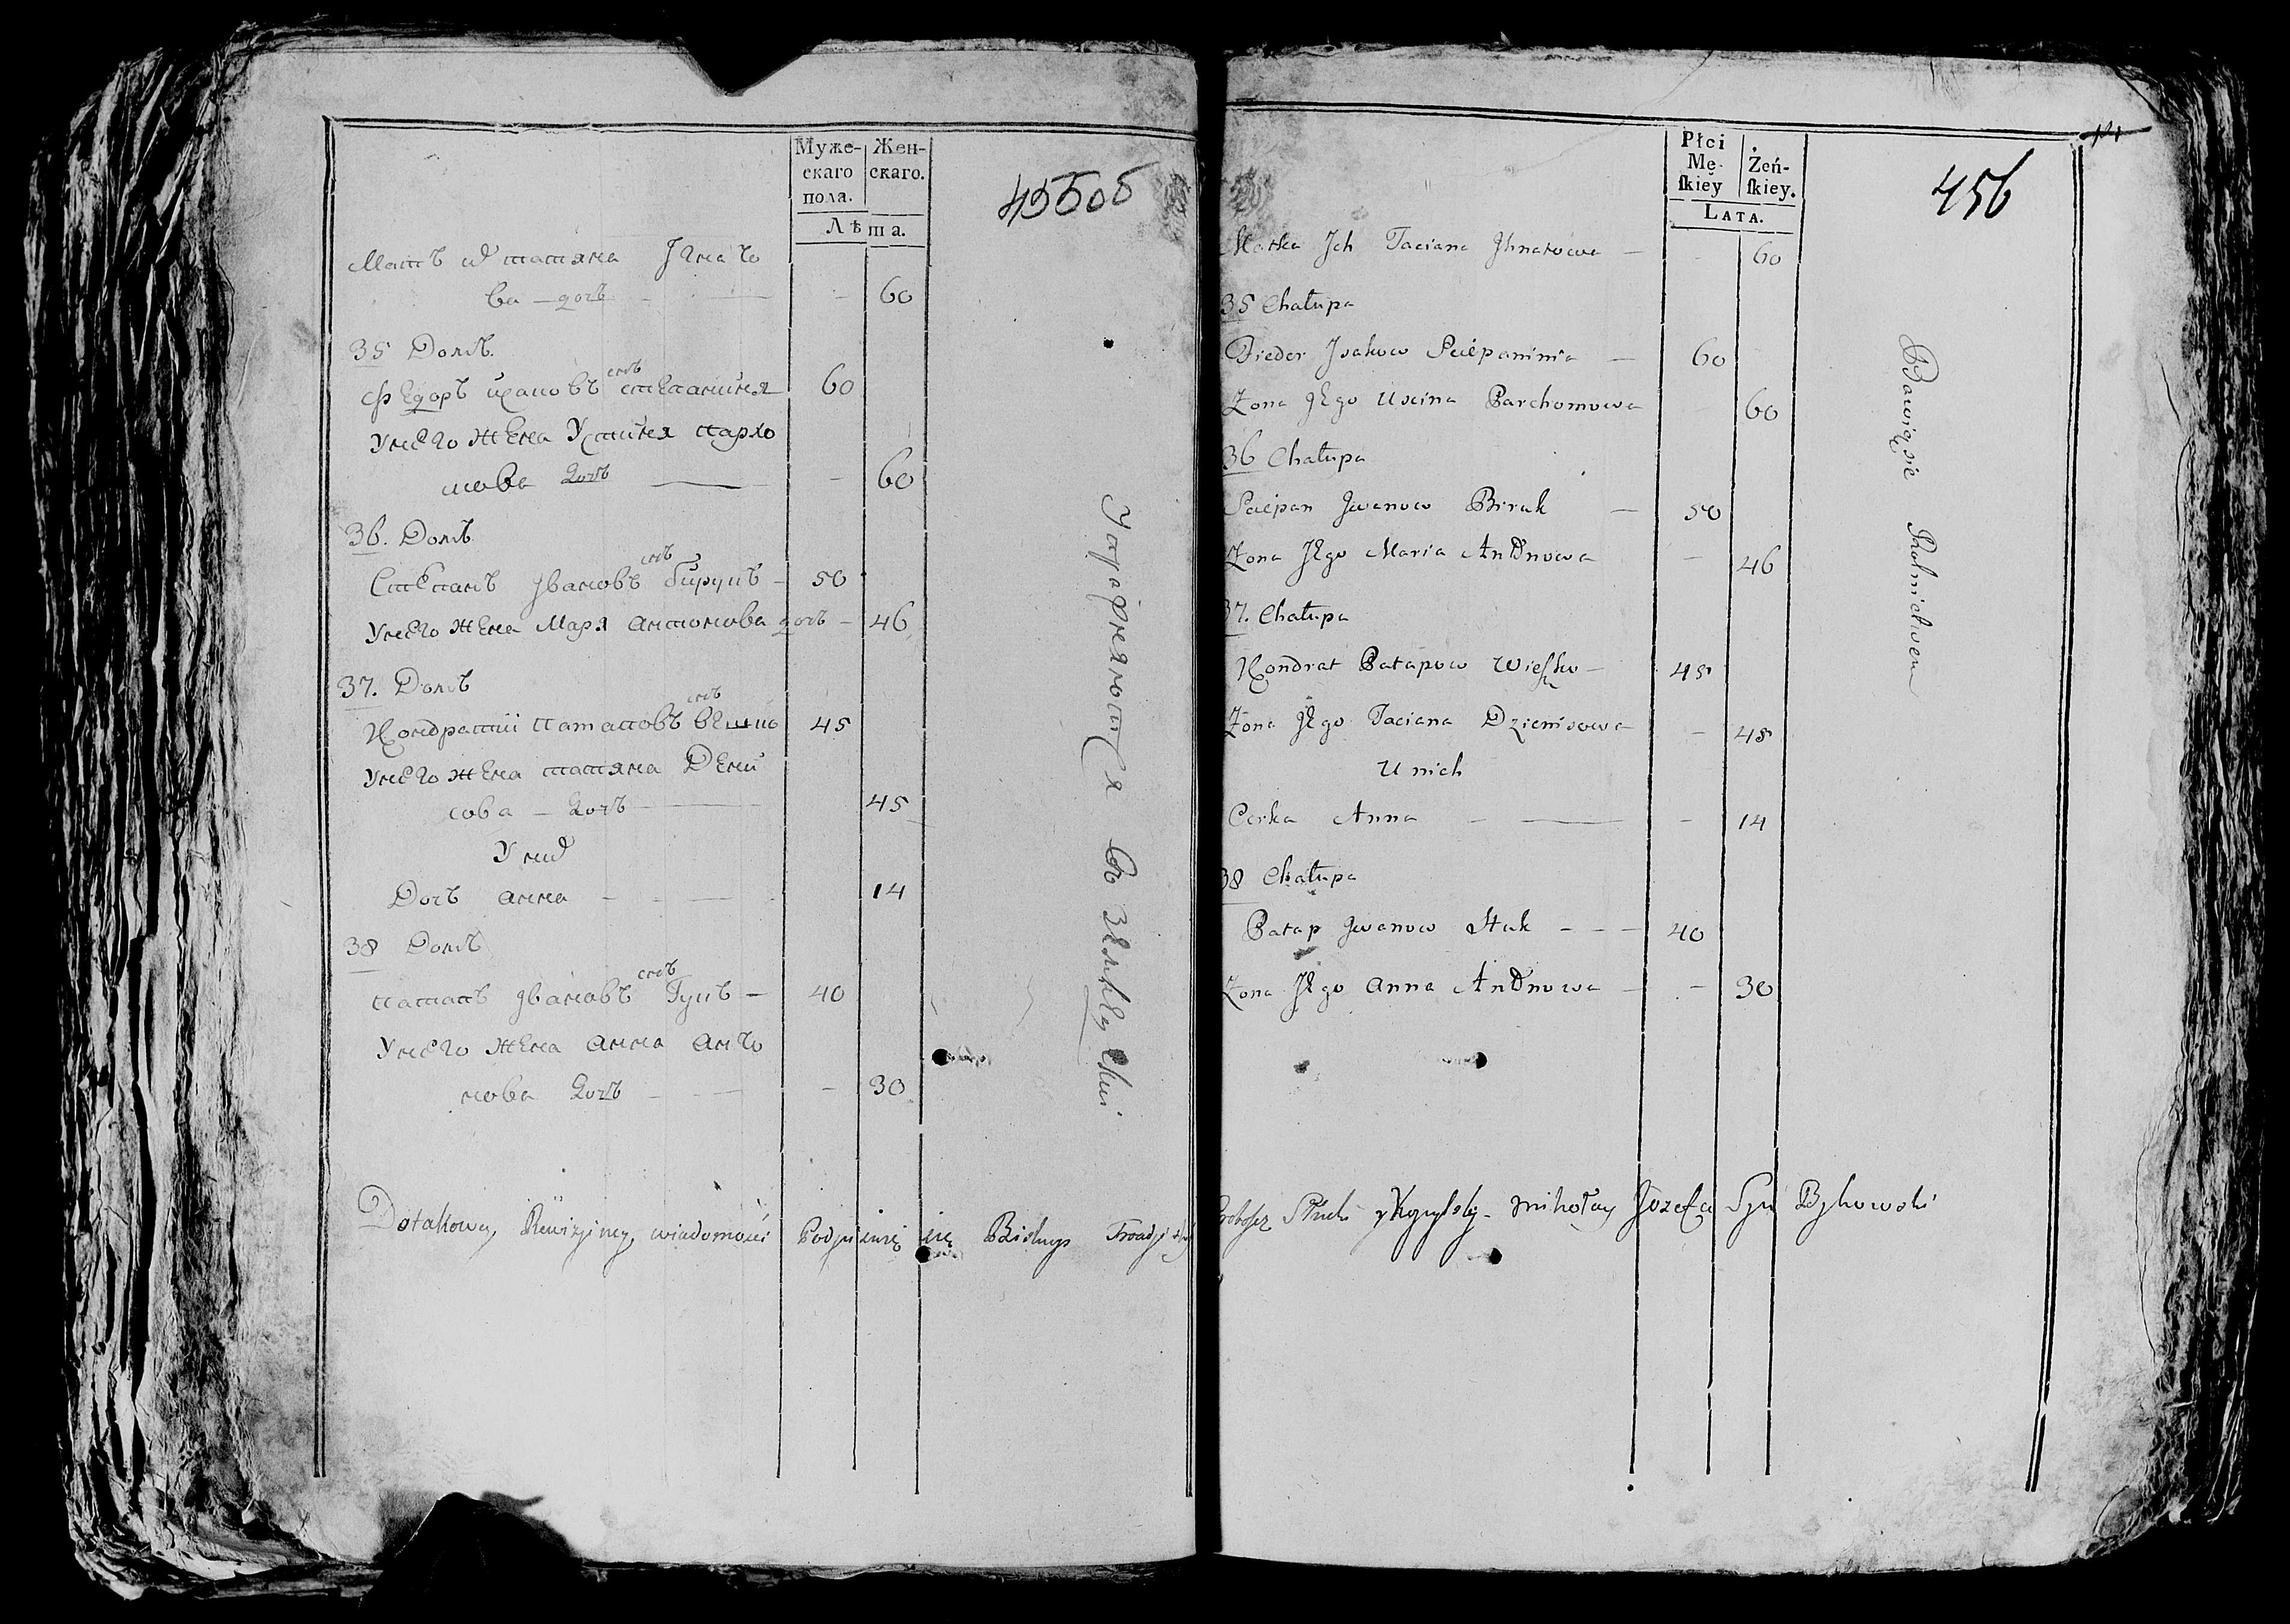 Муже-
скаго
пола.
Жен-
скаго.
Лѣта.
455об
Мать ихъ татяна Iгнато
ва — дочь — 60
35 Домъ.
Федоръ исаковъ снъ степаниня 60
Унего жена Устиня пархо
мова дочь — 60
36. Домъ
Степанъ Iвановъ снъ бирукъ — 50
Унего жена Маря антонова дочь — 46
37. Домъ
Кондратий патаповъ снъ вешко 45
Унего жена татяна Дени
сова — дочь 45
У них
Дочь анна — 14
38 Домъ
патапъ Iвановъ снъ Гукъ — 40
Унего жена анна анто
нова дочь — 30
Упражняются въ
Dotakowey Rewizyiney wiadomości Podpisuię się Biskup
Płci
Mę-
ſkiey
Żeń-
ſkiey.
LATA.
456
Matka Jch Taciana Jhnatowa — 60
35 Chałupa
Fieder Jsakow Sciepaninia — 60
Żona Jego Uscina Parchomowa 60
36 Chałupa
Sciepan Jwanow Biruk — 50
Żona Jego Maria Antonowa — 46
37. Chałupa
Kondrat Patapow Wieszko — 45
Żona Jego Taciana Dzienisowa — 45
U nich
Corka Anna — 14
38 Chałupa
Patap Jwanow Huk - - - 40
Żona Jego Anna Antonowa — 30
Bawią się Rolnictwem
Mikołay Jozefa Syn Bykowski